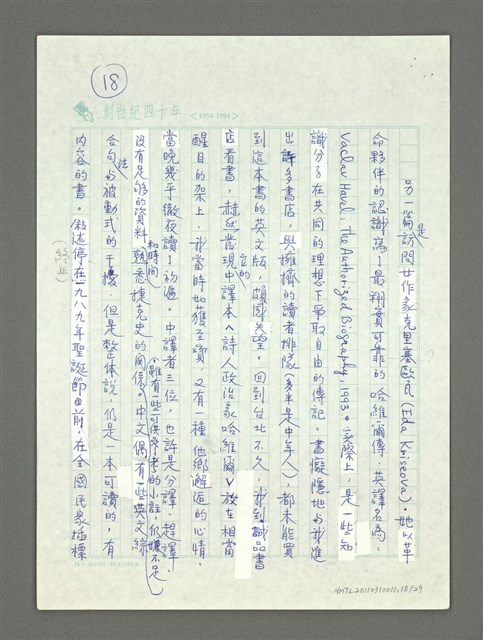 18
創世紀四十年 <1954-1994>
另一篇是訪問女作家克里基歐瓦(Eda Kriseova)。她以革
命夥伴的認識寫了最翔實可靠的哈維爾傳,英譯名為,
Vaclav Havel The Authorized Biography, 1993。實際上,是一些知
識分子在共同的理想下爭取自由的傳記。書癡隱地
出許多書店,與擁擠的讀者排隊(多半是中年人),都未能買
到這本書的英文版,頗感失望。回到台北不久,我到誠品書
店看書,赫然發現它的中譯本<詩人政治家哈維爾>放在相當
醒目的架上,我當時如獲至寶,又有一種他鄉邂逅的心情,
當晚幾乎徹夜讀了初遍。中譯者三位,也許是分譯、趕譯,
沒有足夠的資料和時間,熟悉捷克史的關係。(雖有一些可供參考的小註仍嫌不足)中文偶有一些英文綜
合句法與被動式的干擾,但是整體說,仍是一本可讀的,有
內容的書。敘述停在一九八九年聖誕節的前,在全國民眾插標
(終止)
NMTL20110310011,18/29